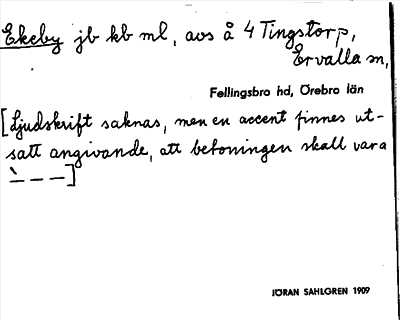 Ekeby jb kb ml, avs å 4 Tingstorp,
Ervalla sn,
Fellingsbro hd, Örebro län
[Ljudskrift saknas, men en accent finnes ut-
satt angivande, att betoningen skall vara
ˋ– – –]
JÖRAN SAHLGREN 1909